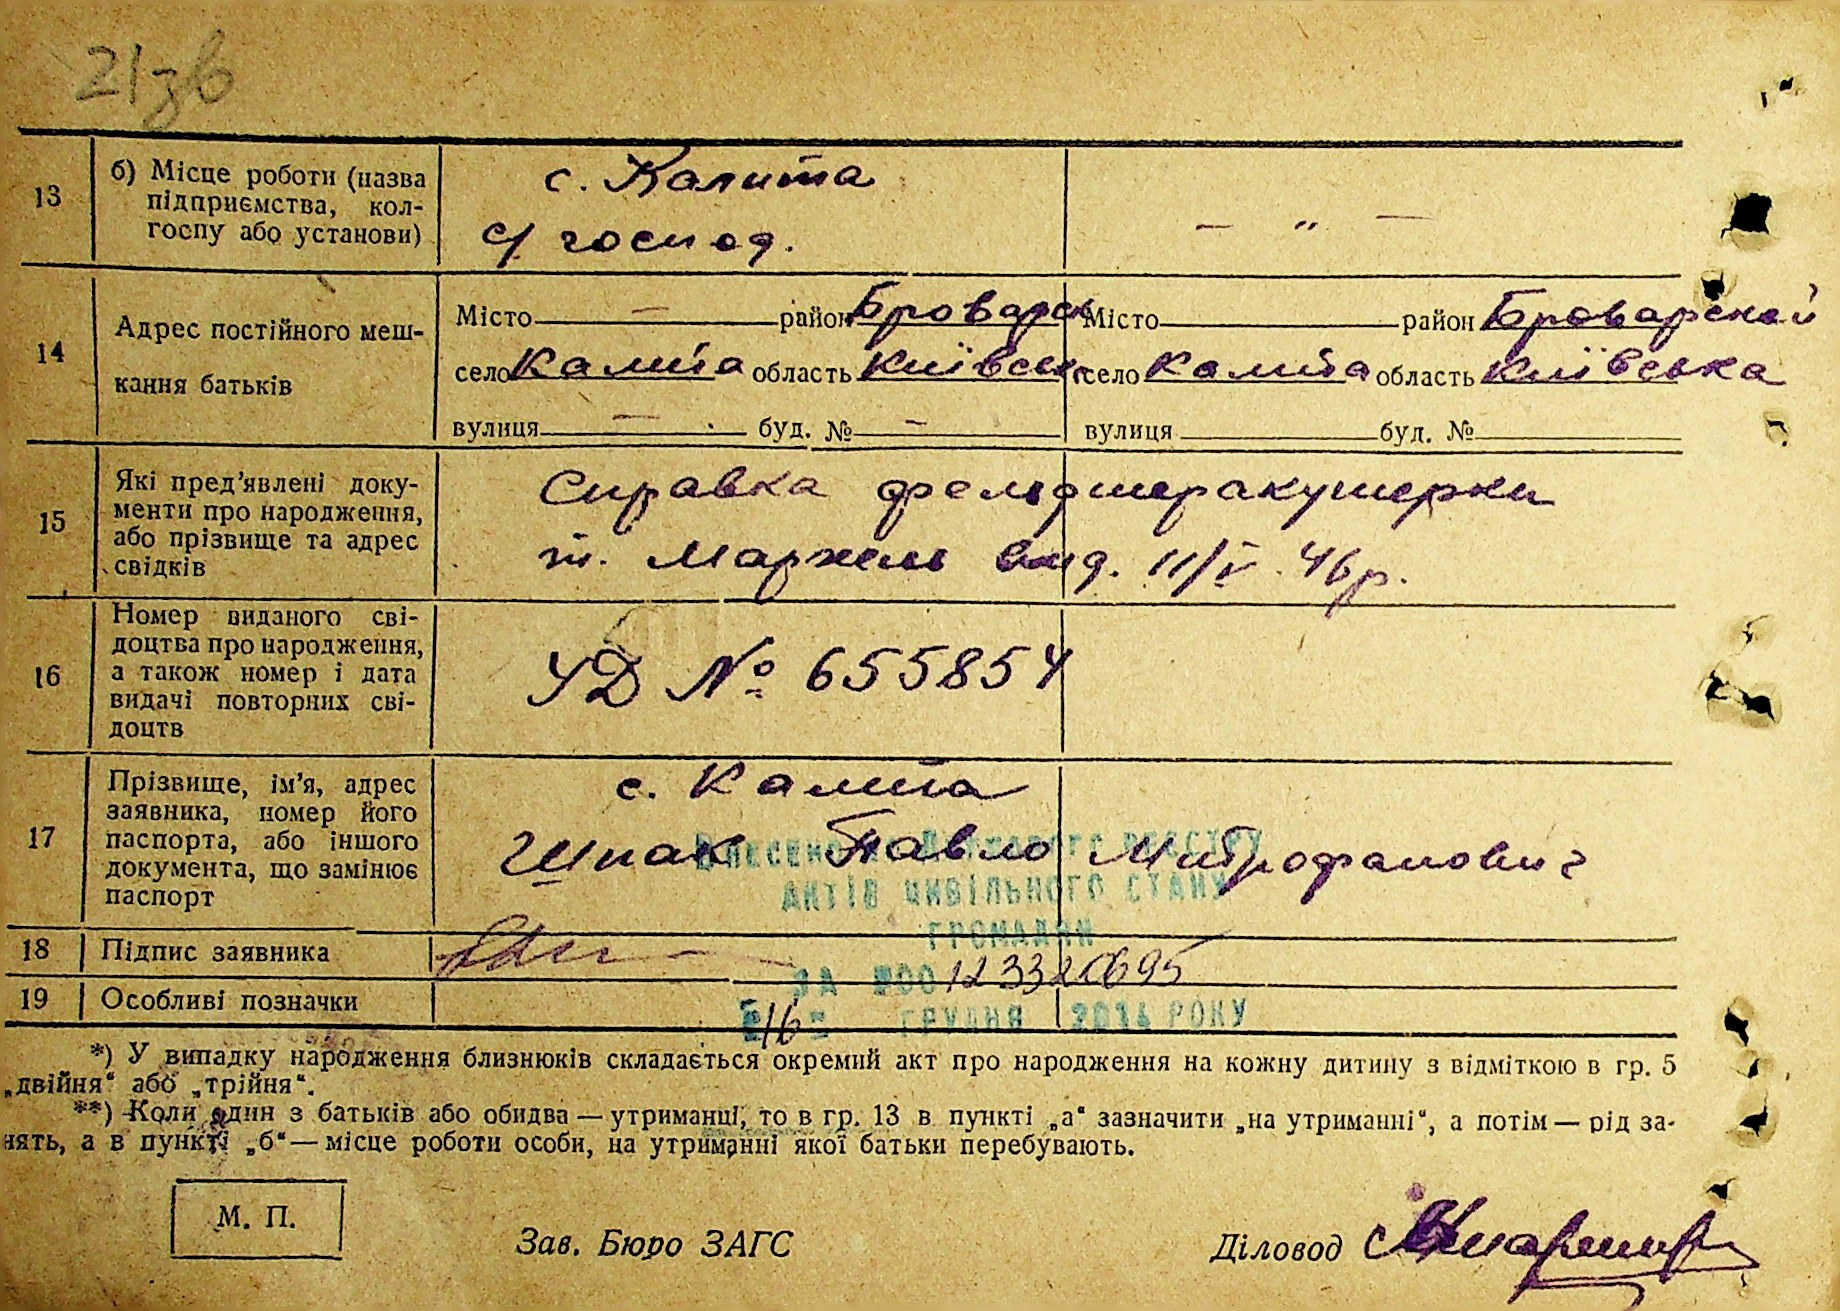 21зв
13
б) Місце роботи (назва
підприємства, кол-
госпу або установи)
с. Калита
с/ господ.
— „ —
14
Адрес постійного меш-
кання батьків
Місто — район Броварск
село Калита область Київська
вулиця — буд. № —
Місто район Броварской
село Калита область Київська
вулиця буд. №
15
Які пред’явлені доку-
менти про народження,
або прізвище та адрес
свідків
Справка фельдшеракушерки
т. Маржель вид. 11/V 46р.
16
Номер виданого сві-
доцтва про народження,
а також номер і дата
видачі повторних сві-
доцтв
УД № 655854
17
Прізвище, ім’я, адрес
заявника, номер його
паспорта, або іншого
документа, що замінює
паспорт
с. Калита
Шпак Павло Митрофанович
Внесено до Державного реєстру
актів цивільного стану
громадян
18
Підпис заявника
за №00123320695
19
Особливі позначки
16 грудня 2014 року
*) У випадку народження близнюків складається окремий акт про народження на кожну дитину з відміткою в гр. 5
„двійня“ або „трійня“.
**) Коли один з батьків або обидва — утриманці, то в гр. 13 в пункті „а“ зазначити „на утриманні“, а потім — рід за-
нять, а в пункті „б“ — місце роботи особи, на утриманні якої батьки перебувають.
М. П.
Зав. Бюро ЗАГС
Діловод